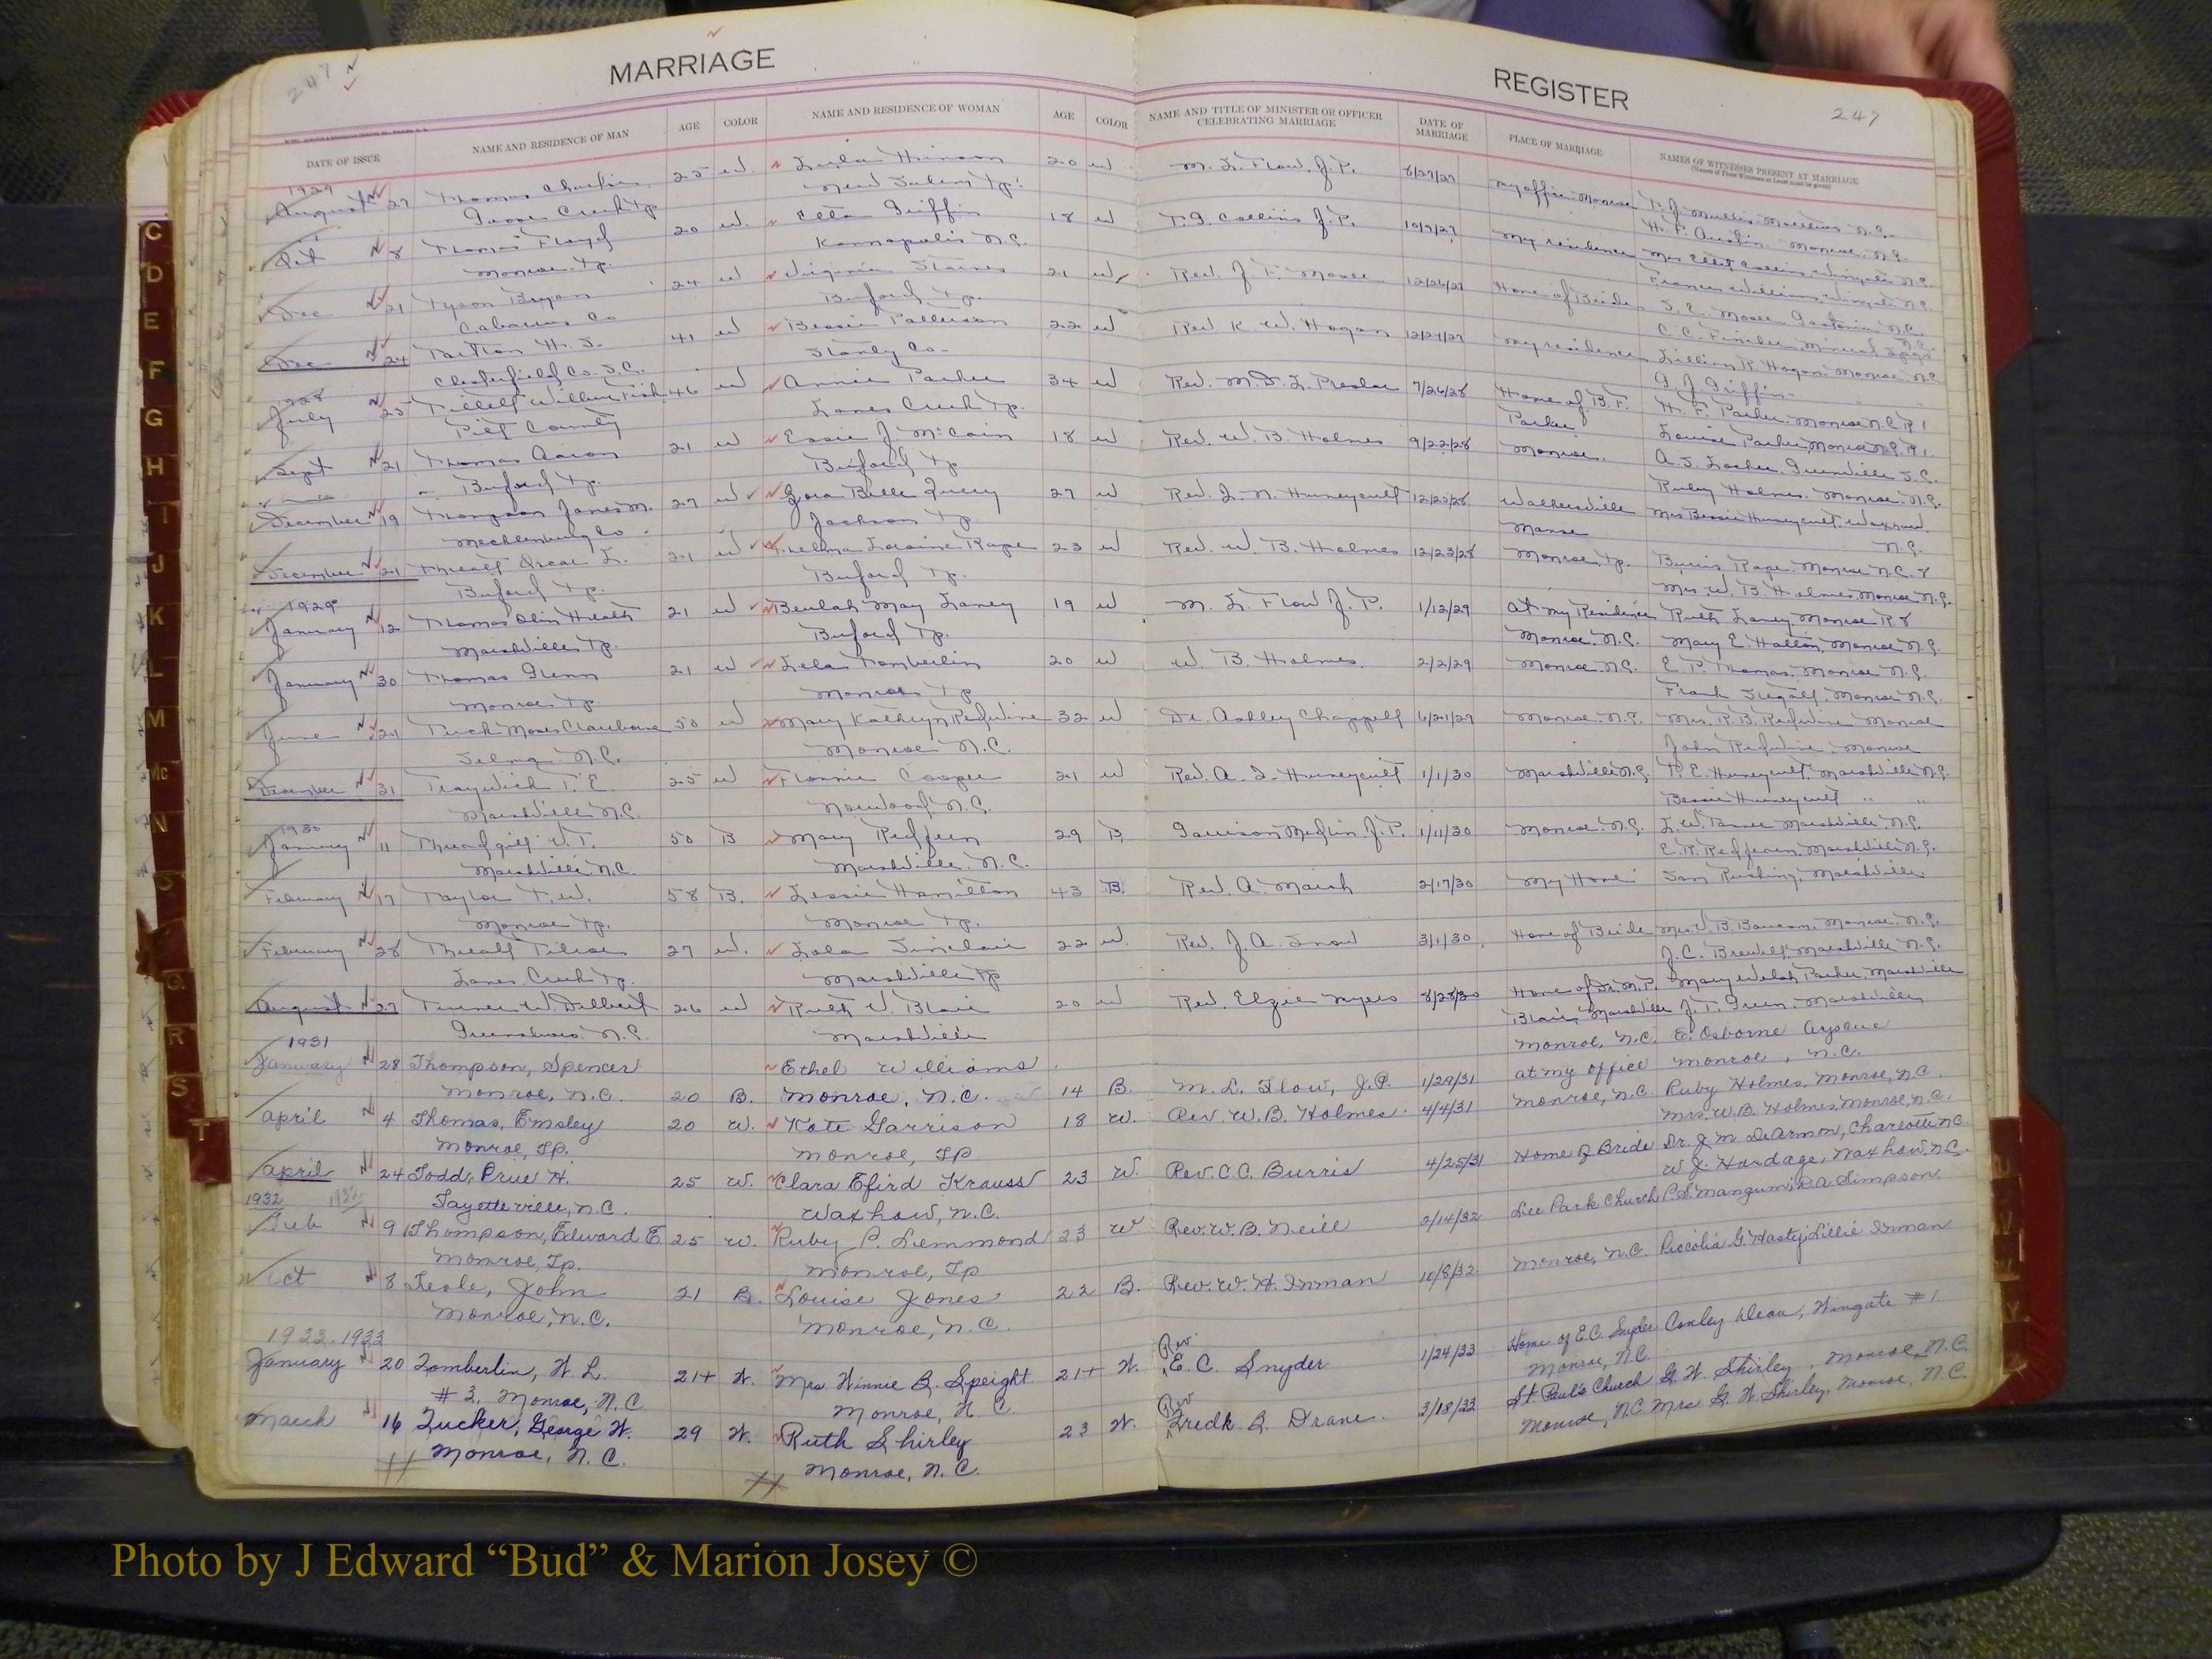 247
MARRIAGE
REGISTER
247
DATE OF ISSUE NAME AND RESIDENCE OF MAN AGE COLOR NAME AND RESIDENCE OF WOMAN AGE COLOR NAME AND TITLE OF MINISTER OR OFFICER CELEBRATING MARRIAGE DATE OF MARRIAGE PLACE OF MARRIAGE NAMES OF WITNESSES PRESENT AT MARRIAGE
August 27 Thomas Charlie 25 W Hinson 20 W M. L. Flow J. P. My office Monroe
New Salem Tp.
H. F. Austin Monroe N.C.
Oct 8 Thomas Floyd 20 W. Etta Griffin 18 W T. G. Collins J. P. 10/9/27 My residence
Monroe Tp. Kannapolis N.C.
Dec 21 Tyson Bryan 24 W Virginia Starnes 21 W Rev. J. F. Moser 12/26/27 Home of Bride
Cabarrus Co Buford Tp.
Dec 24 41 W Bessie Patterson 22 W Rev K. W. Hogan 12/24/27 My residence Lillian R. Hogan Monroe N.C.
Chesterfield Co. S.C. Stanly Co.
1928
July 25 46 W Annie Parker 34 W Rev. M. D. L. Preslar 7/26/28 Home of B. F. Parker H. F. Parker Monroe N.C. R 1
Pitt County Lanes Creek Tp. Louise Parker Monroe N.C. R 1
Sept 21 Thomas Aaron 21 W Essie J. McCain 18 W Rev. W. B. Holmes 9/22/28 Monroe
Buford Tp. Buford Tp. Ruby Holmes Monroe N.C.
December 19 Thompson James M. 27 W Zora Belle Query 27 W Rev. L. N. Huneycutt 12/20/28 Walkersville Manse Mrs Bessie Huneycutt Waxhaw N.C.
Mecklenburg Co Jackson Tp.
December 21 Threatt Oscar L. 21 W Thelma Loraine Rape 23 W Rev. W. B. Holmes 12/23/28 Monroe Tp. Burris Rape Monroe N.C. 8
Buford Tp. Buford Tp. Mrs. W. B. Holmes Monroe N.C.
1929
January 12 Thomas Olin Heath 21 W Beulah May Laney 19 W M. L. Flow J. P. 1/12/29 At my Residence Ruth Laney Monroe R 8
Marshville Tp. Buford Tp. Monroe N.C. Mary E. Hatton Monroe N.C.
January 30 Thomas Glenn 21 W Lela Tomberlin 20 W W. B. Holmes 2/2/29 Monroe N.C. E. P. Thomas Monroe N.C.
Monroe Tp Monroe Tp Frank Stegall Monroe N.C.
June 21 Tuck Moses Clauborne 50 W Mary Kathryn Redwine 32 W Dr. Ashley Chappell 6/21/29 Monroe N.C. Mrs. R. B. Redwine Monroe
Selma N.C. Monroe N.C. John Redwine Monroe
December 31 Traywick T. E. 25 W Flonnie Cooper 21 W Rev. A. L. Huneycutt 1/1/30 Marshville N.C. T. E. Huneycutt Marshville N.C.
Marshville N.C. Norwood N.C. Bessie Huneycutt " "
1930
January 11 Threadgill V. T. 50 B Mary Redfern 29 B Garrison Medlin J. P. 1/11/30 Monroe N.C. L. W. Tanner Marshville N.C.
Marshville N.C. Marshville N.C. E. R. Redfearn Marshville N.C.
February 17 Taylor T. W. 58 B. Lessie Hamilton 43 B. Rev. A. Marsh 2/17/30 My Home Sam Rushing Marshville
Monroe Tp. Monroe Tp.
February 28 Threatt Tilson 27 W. Lola Sinclair 22 W. Rev. J. A. Snow 3/1/30 Home of Bride
Lanes Creek Tp. Marshville Tp J. C. Brewer Marshville N.C.
August 27 Turner W. Delbert 26 W Ruth V. Blair 20 W Rev. Elzie Myers 8/28/30 Home of Dr. M. P. Blair, Marshville Mary Welsh Parker Marshville
Greensboro N.C. Marshville J. T. Green Marshville
1931
January 28 Thompson, Spencer Ethel Williams Monroe, N.C. E. Osborne Ayscue
Monroe, N.C. 20 B. Monroe, N.C. 14 B. M. L. Flow, J.P. 1/29/31 at my office Monroe, N.C.
April 4 Thomas, Emsley 20 W. Kate Garrison 18 W. Rev. W. B. Holmes 4/4/31 Monroe, N.C. Ruby Holmes, Monroe, N.C.
Monroe, Tp. Monroe, Tp Mrs W. B. Holmes, Monroe, N.C.
April 24 Todd, Prue H. 25 W. Clara Efird Krauss 23 W. Rev. C. C. Burris 4/25/31 Home of Bride Dr. J. M. DeArmon, Charlotte N.C.
Fayetteville, N.C. Waxhaw, N.C. W. J. Hardage, Waxhaw, N.C.
1932 1932
Feb 9 Thompson, Edward E. 25 W. Ruby P. Lemmond 23 W Rev. W. B. Neill 2/14/32 Lee Park Church P. S. Mangum; R. A. Simpson
Monroe, Tp. Monroe, Tp
Oct 8 Teale, John 21 B. Louise Jones 22 B. Rev. W. H. Inman 10/8/32 Monroe, N.C. Piccolia G. Hasty; Lillie Inman
Monroe, N.C. Monroe, N.C.
1933 1933
January 20 Tomberlin, W. L. 21+ W. Mrs. Winnie B. Speight 21+ W. Rev E. C. Snyder 1/24/33 Home of E.C. Snyder Conley Dean, Wingate #1
#3, Monroe, N.C. Monroe, N.C. Monroe, N.C.
March 16 Tucker, George W. 29 W. Ruth Shirley 23 W. Rev Fredk. B. Drane 3/18/33 St. Paul's Church G. W. Shirley, Monroe, N.C.
Monroe, N.C. Monroe, N.C. Monroe, N.C. Mrs G. W. Shirley, Monroe, N.C.
C
D
E
F
G
H
I
J
K
L
M
Mc
N
O
Q
R
S
T
U
V
W
Y
Photo by J Edward “Bud” & Marion Josey ©